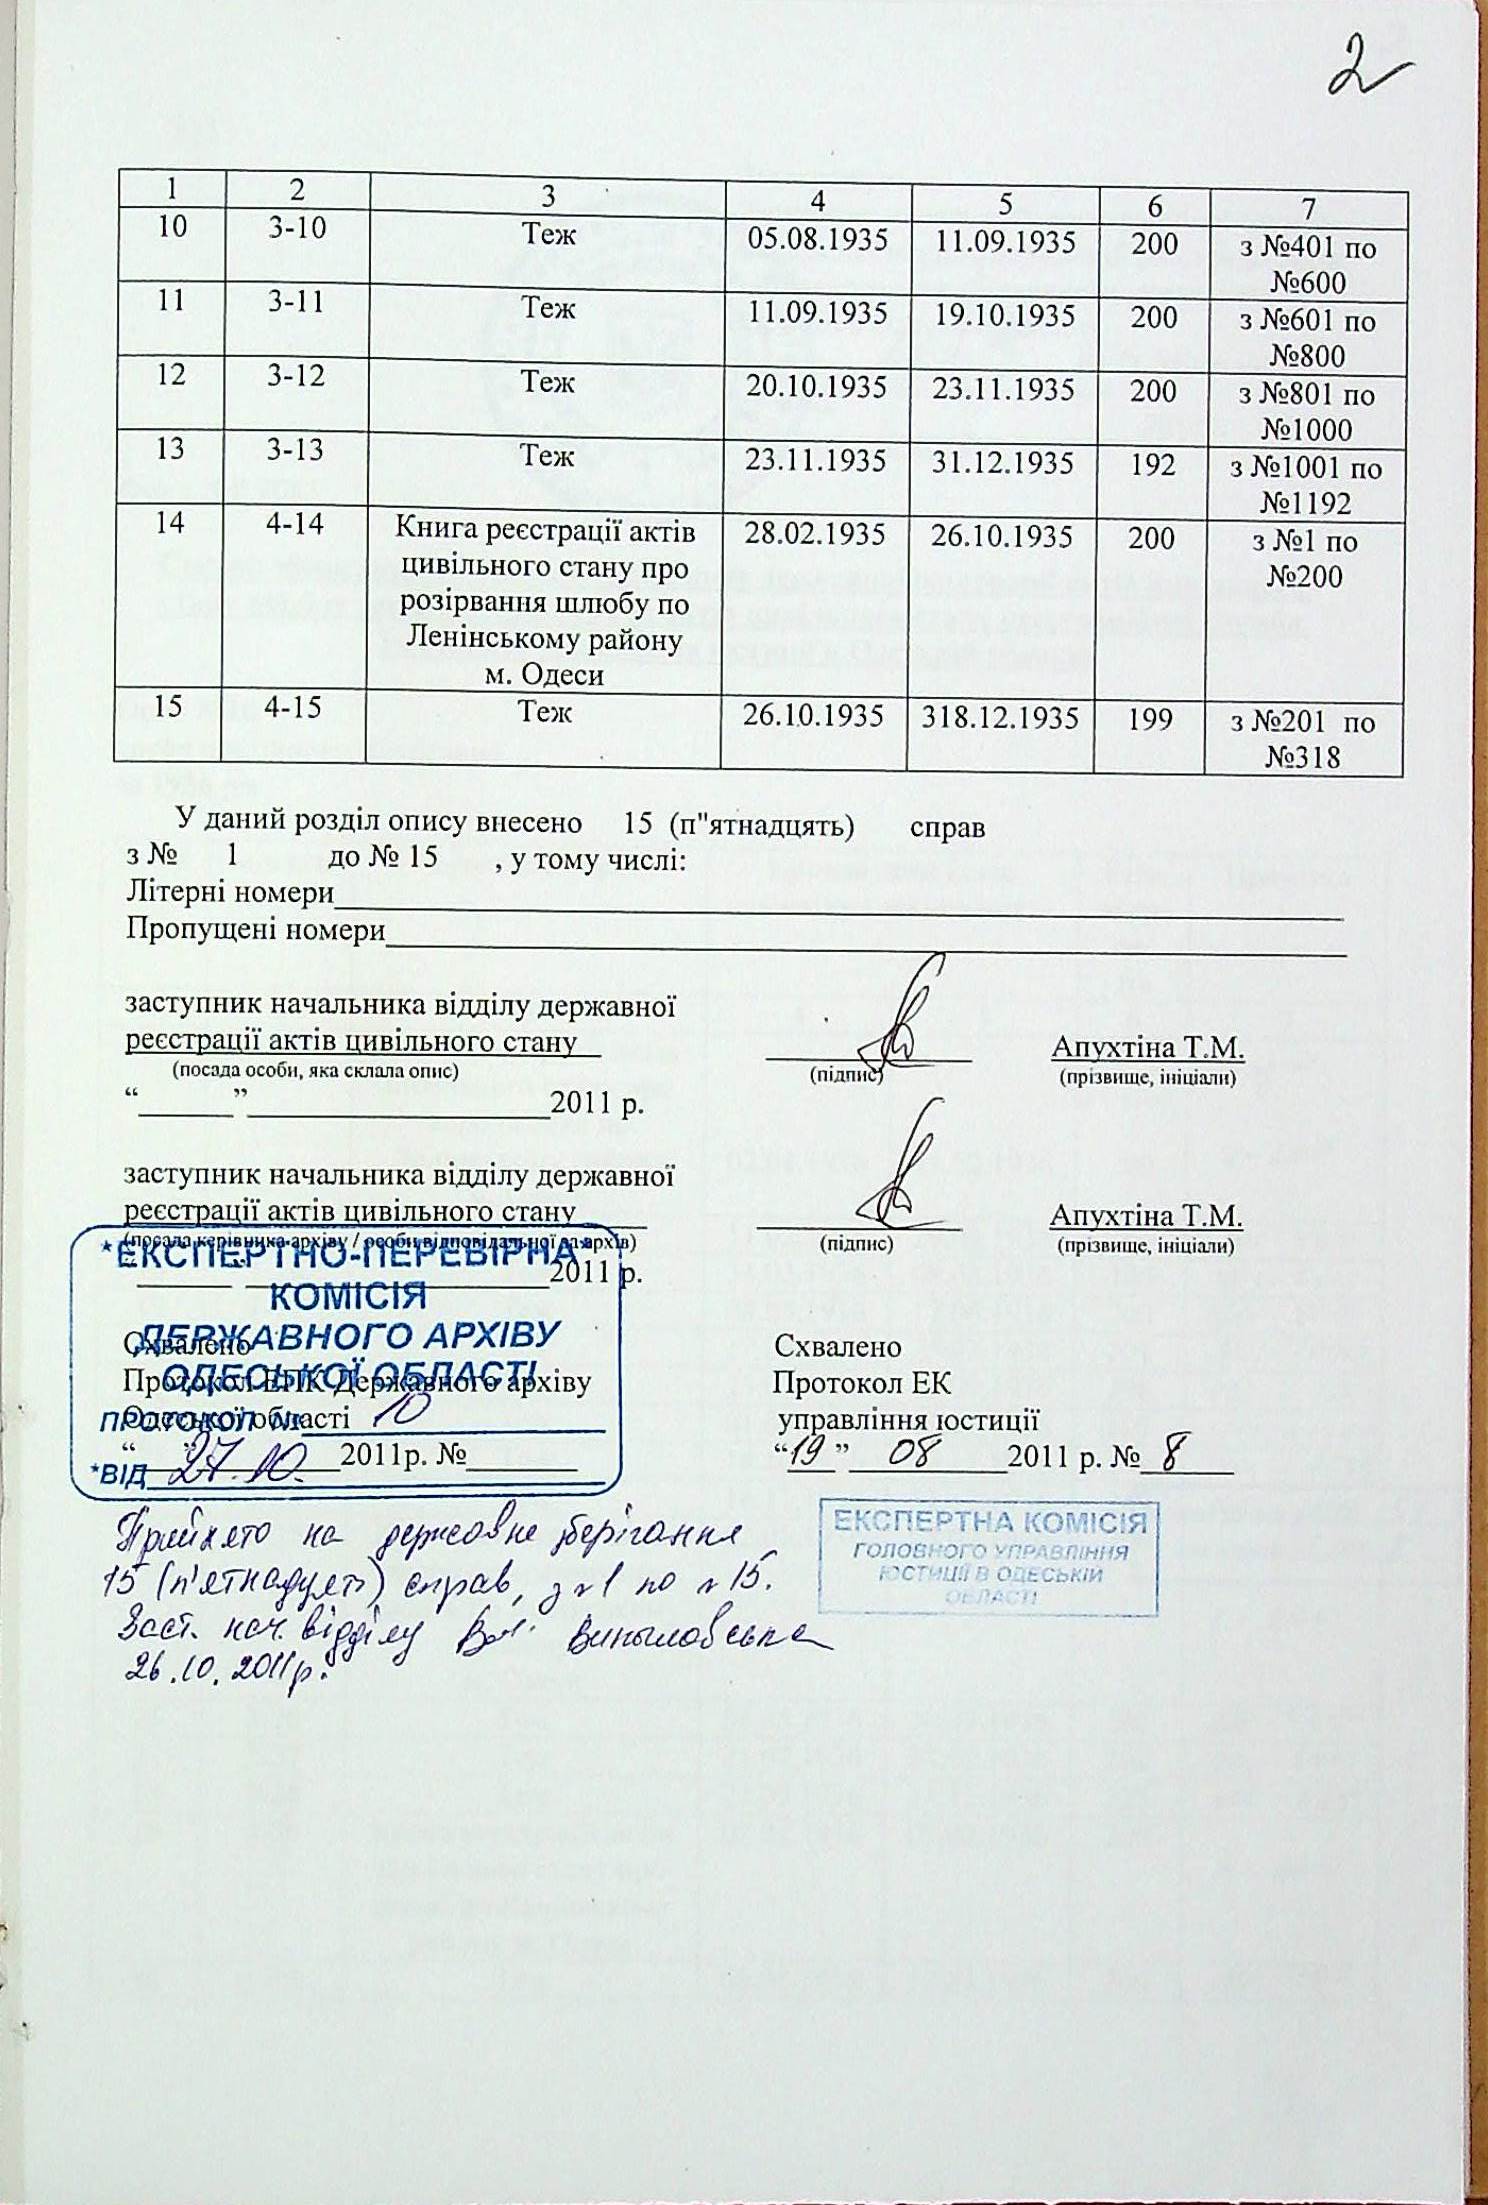 2
1 2 3 4 5 6 7
10 3-10 Теж 05.08.1935 11.09.1935 200 з №401 по
№600
11 3-11 Теж 11.09.1935 19.10.1935 200 з №601 по
№800
12 3-12 Теж 20.10.1935 23.11.1935 200 з №801 по
№1000
13 3-13 Теж 23.11.1935 31.12.1935 192 з №1001 по
№1192
14 4-14 Книга реєстрації актів 28.02.1935 26.10.1935 200 з №1 по
цивільного стану про №200
розірвання шлюбу по
Ленінському району
м. Одеси
15 4-15 Теж 26.10.1935 318.12.1935 199 з №201 по
№318
У даний розділ опису внесено 15 (п"ятнадцять) справ
з № 1 до № 15 , у тому числі:
Літерні номери
Пропущені номери
заступник начальника відділу державної
реєстрації актів цивільного стану Апухтіна Т.М.
(посада особи, яка склала опис) (підпис) (прізвище, ініціали)
“ ” 2011 р.
заступник начальника відділу державної
реєстрації актів цивільного стану Апухтіна Т.М.
(посада керівника архіву / особи відповідальної за архів) (підпис) (прізвище, ініціали)
2011 р.
*ЕКСПЕРТНО-ПЕРЕВІРНА
КОМІСІЯ
ДЕРЖАВНОГО АРХІВУ
ОДЕСЬКОЇ ОБЛАСТІ
ПРОТОКОЛ № 10
*ВІД 27.10.
Схвалено
Протокол ЕПК Державного архіву
Одеської області
“ ” 2011р. №
Схвалено
Протокол ЕК
управління юстиції
“19” 08 2011 р. № 8
ЕКСПЕРТНА КОМІСІЯ
ГОЛОВНОГО УПРАВЛІННЯ
ЮСТИЦІЇ В ОДЕСЬКІЙ
ОБЛАСТІ
Прийнято на державне зберігання
15 (п'ятнадцять) справ, з №1 по №15.
Заст. нач. відділу
26.10.2011р.